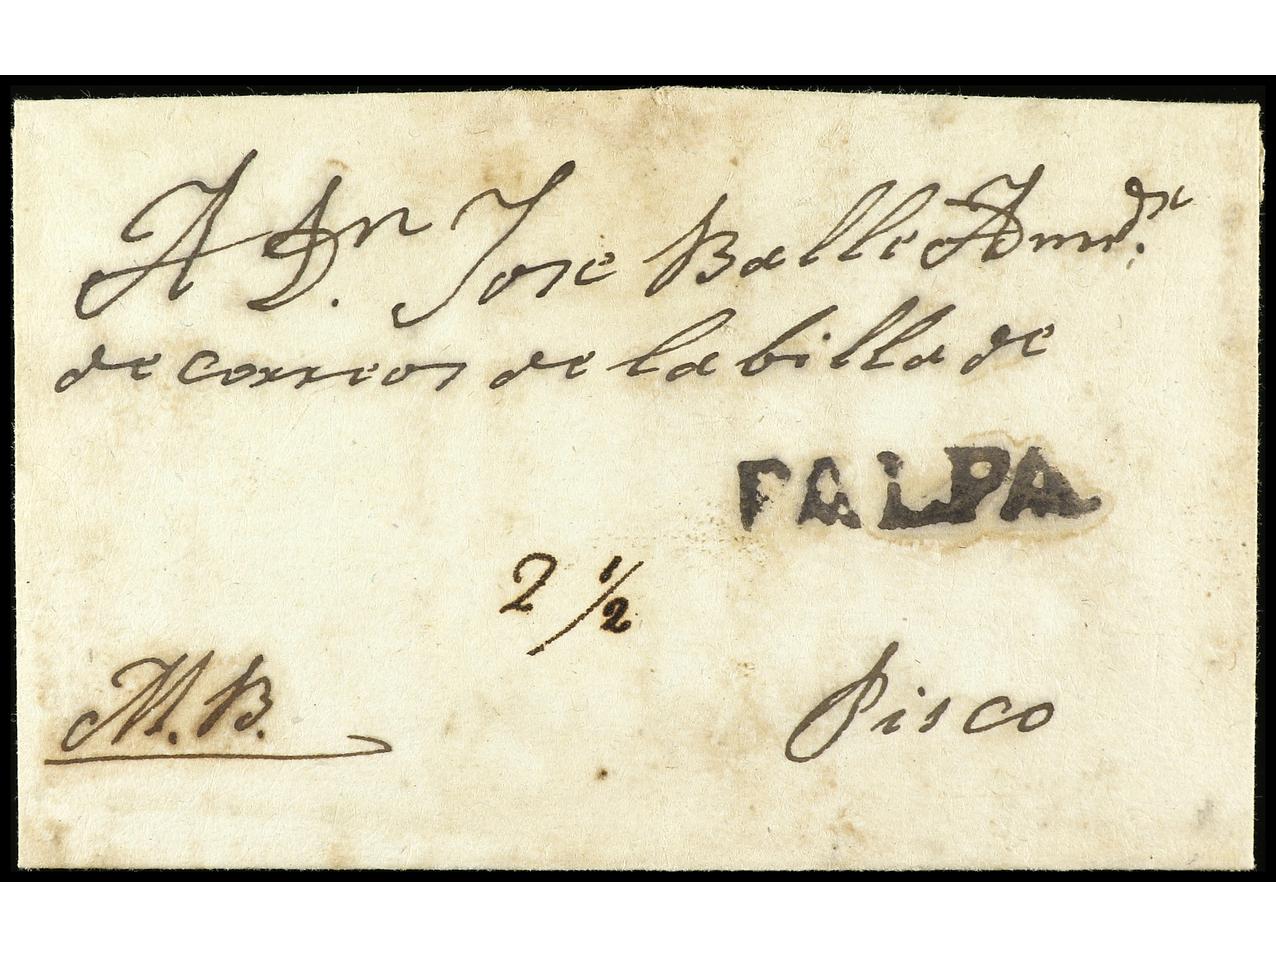 A Dn. Jose Balle Admr.
de correos de la billa de
PALPA
2 1/2
M. B.
Pisco